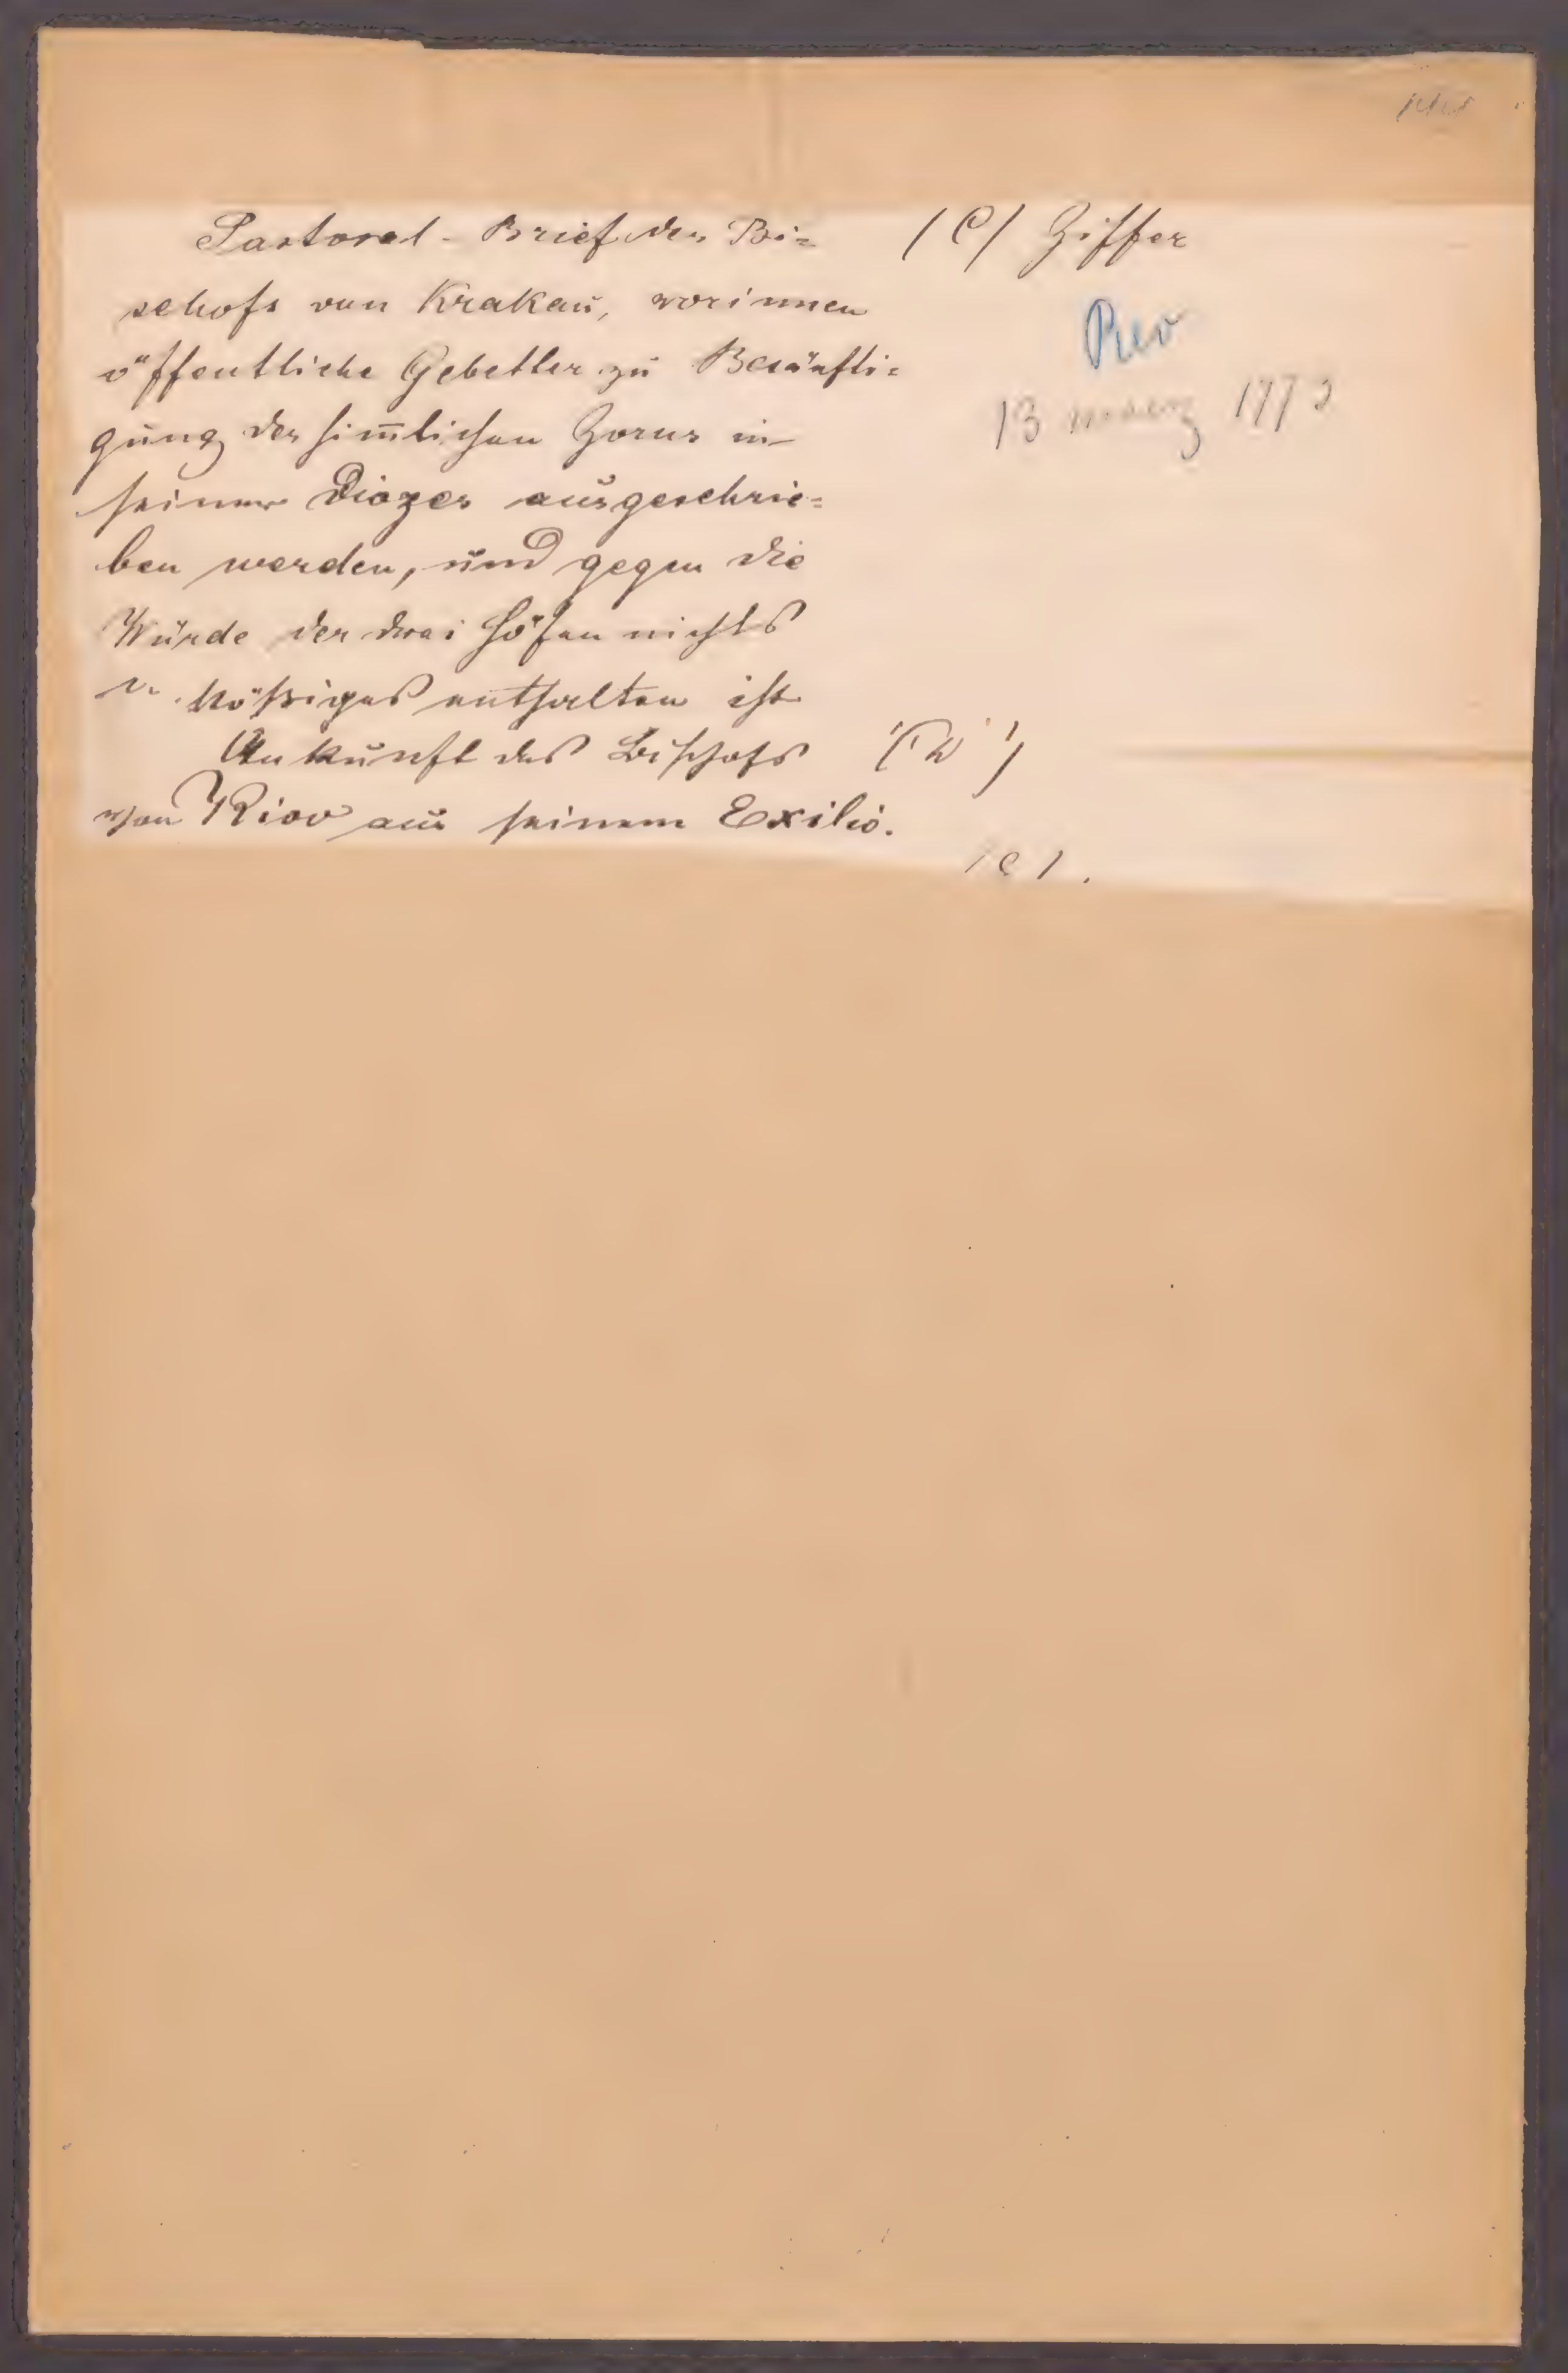 Pastoral-Brief des Bi=
schofs von Krakau, worinnen
öffentliche Gebetter zu Besänfti=
gung des him̅lischen Zorns in
seiner Diozes ausgeschrie=
ben werden, und gegen die
Würde der drei Höfen nichts
stößiges enthalten ist
Ankunft des Bischofs
von Kiov aus seinem Exilio.
/C/ Ziffer
13 maerz 1773
/e/.